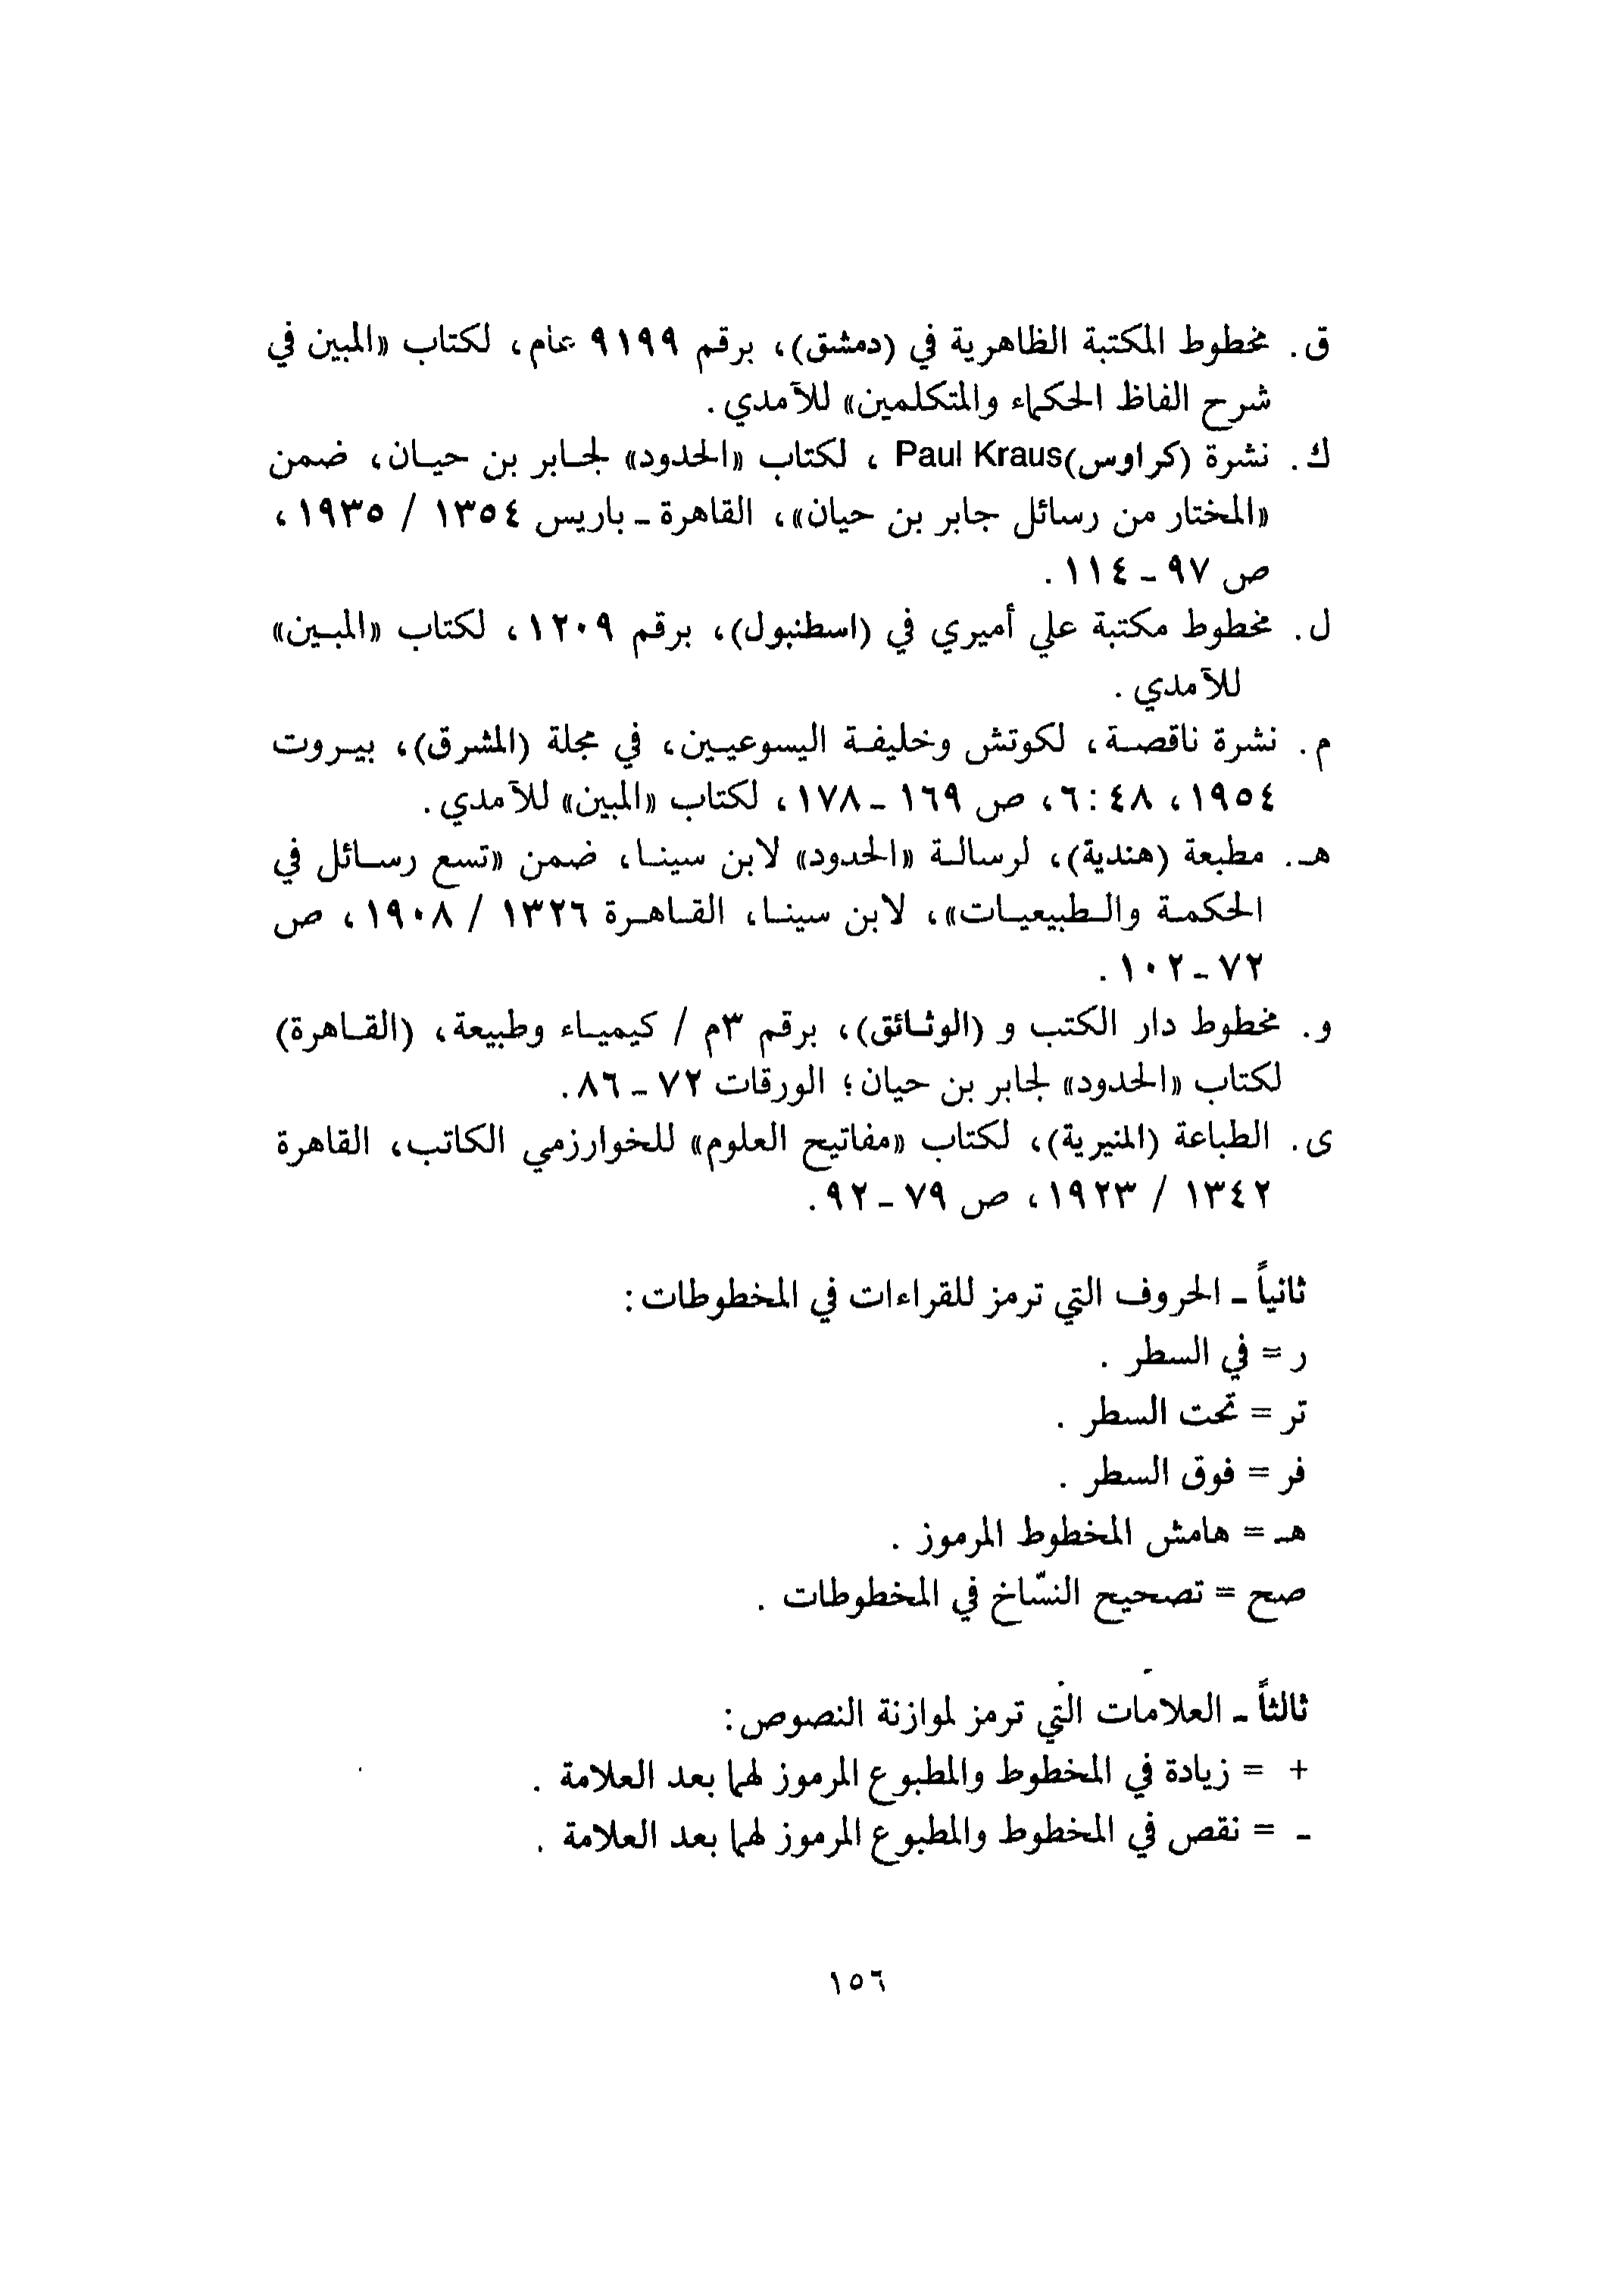 ق. مخطوط المكتبة الظاهرية في (دمشق)، برقم ٩١٩٩ عام، لكتاب «المبين في
شرح الفاظ الحكماء والمتكلمين» للآمدي.
ك. نشرة (كراوس)Paul Kraus ، لكتاب «الحدود» لجابر بن حيان، ضمن
«المختار من رسائل جابر بن حيان»، القاهرة ـ باريس ١٣٥٤ / ١٩٣٥،
ص ٩٧ ـ ١١٤.
ل. مخطوط مكتبة علي أميري في (اسطنبول)، برقم ١٢٠٩، لكتاب «المبين»
للآمدي.
م. نشرة ناقصة، لكوتش وخليفة اليسوعيين، في مجلة (المشرق)، بيروت
١٩٥٤، ٤٨ : ٦، ص ١٦٩ ـ ١٧٨، لكتاب «المبين» للآمدي.
هـ. مطبعة (هندية)، لرسالة «الحدود» لابن سينا، ضمن «تسع رسائل في
الحكمة والطبيعيات»، لابن سينا، القاهرة ١٣٢٦ / ١٩٠٨، ص
٧٢ ـ ١٠٢.
و. مخطوط دار الكتب و (الوثائق)، برقم ٣م / كيمياء وطبيعة، (القاهرة)
لكتاب «الحدود» لجابر بن حيان؛ الورقات ٧٢ ـ ٨٦.
ى. الطباعة (المنيرية)، لكتاب «مفاتيح العلوم» للخوارزمي الكاتب، القاهرة
١٣٤٢ / ١٩٢٣، ص ٧٩ ـ ٩٢.
ثانياً ـ الحروف التي ترمز للقراءات في المخطوطات:
ر = في السطر.
تر = تحت السطر.
فر = فوق السطر.
هـ = هامش المخطوط المرموز.
صح = تصحيح النسّاخ في المخطوطات.
ثالثاً ـ العلامات التي ترمز لموازنة النصوص:
+ = زيادة في المخطوط والمطبوع المرموز لهما بعد العلامة.
ـ = نقص في المخطوط والمطبوع المرموز لهما بعد العلامة.
١٥٦